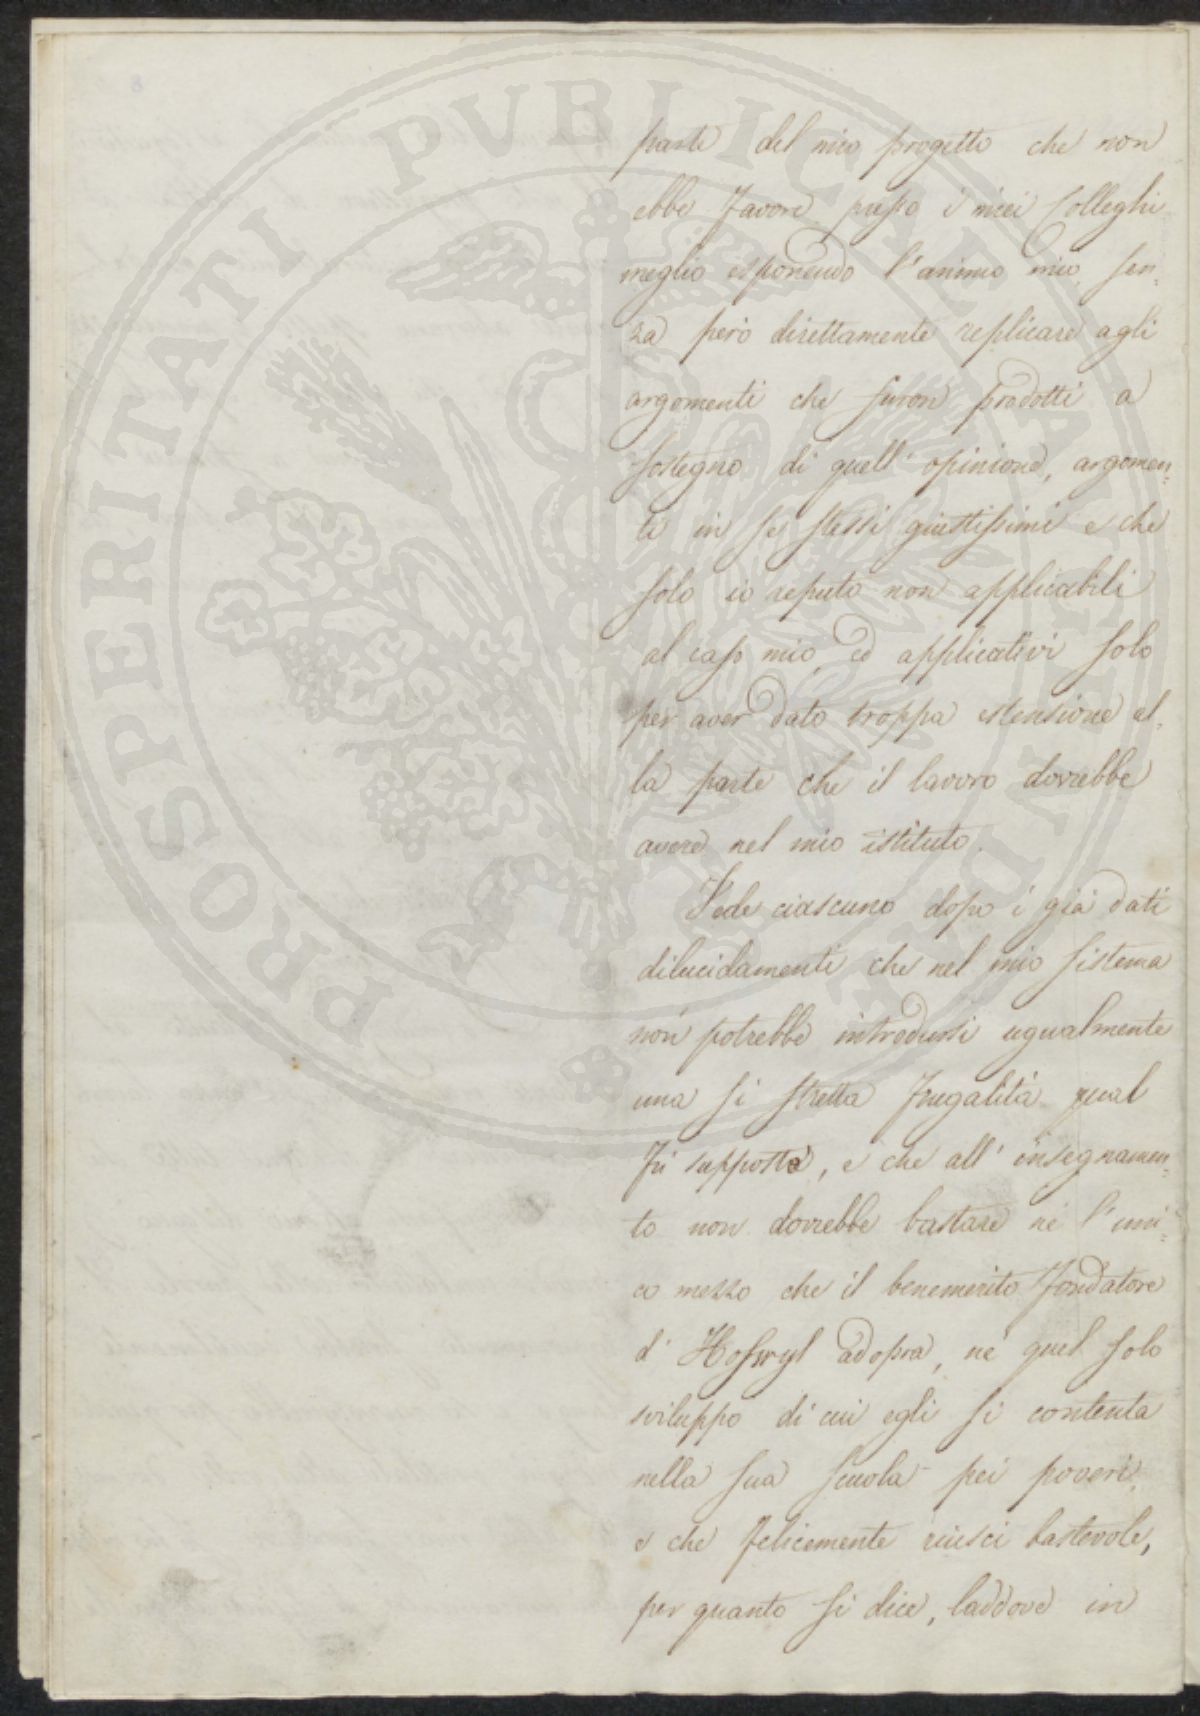 PROSPERITATI PUBLICAE AUGENDAE
parte del mio progetto che non
ebbe favore presso i miei Colleghi
meglio esponendo l'animo mio, sen=
za però direttamente replicare agli
argomenti che furon prodotti a
sostegno di quell'opinione, argomen=
ti in se stessi giustissimi e che
solo io reputo non applicabili
al caso mio, ed applicativi solo
per aver dato troppa estensione al=
la parte che il lavoro dovrebbe
avere nel mio istituto.
Vede ciascuno dopo i già dati
dilucidamenti che nel mio sistema
non potrebbe introdursi ugualmente
una si stretta frugalità qual
fu supposta, e che all'insegnamen=
to non dovrebbe bastare nè l'uni=
co mezzo che il benemerito fondatore
d'Hofwyl adopra, nè quel solo
sviluppo di cui egli si contenta
nella sua scuola pei poveri,
e che felicemente riuscì bastevole,
per quanto si dice, laddove in